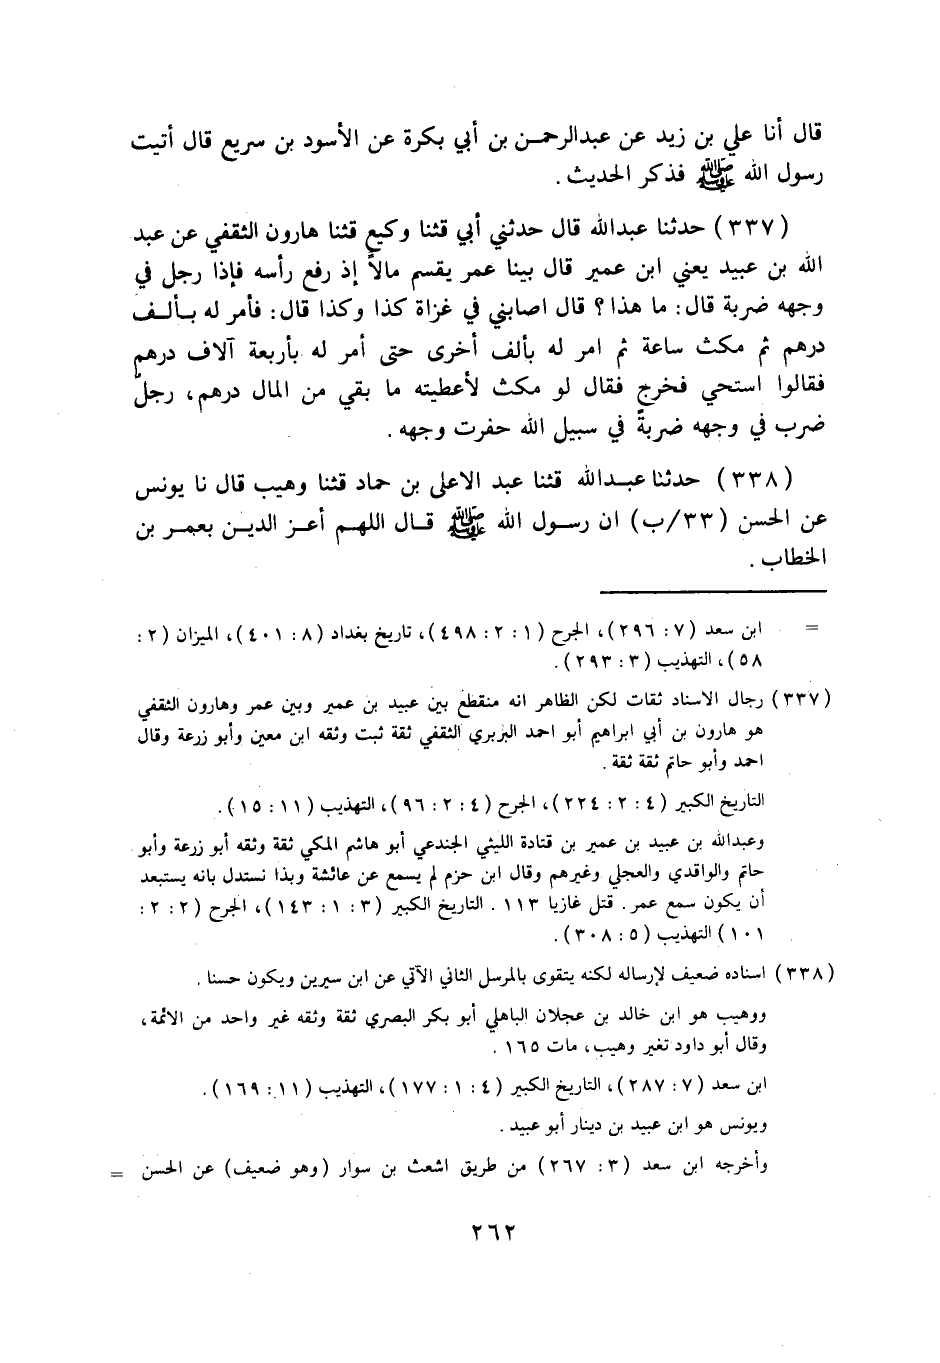 قال أنا علي بن زيد عن عبدالرحمن بن أبي بكرة عن الأسود بن سريع قال أتيت
رسول الله ﷺ فذكر الحديث .
(٣٣٧) حدثنا عبدالله قال حدثني أبي قثنا وكيع قثنا هارون الثقفي عن عبد
الله بن عبيد يعني ابن عمير قال بينا عمر يقسم مالاً إذ رفع رأسه فإذا رجل في
وجهه ضربة قال: ما هذا؟ قال اصابني في غزاة كذا وكذا قال: فأمر له بألف
درهم ثم مكث ساعة ثم امر له بألف أخرى حتى أمر له بأربعة آلاف درهم
فقالوا استحي فخرج فقال لو مكث لأعطيته ما بقي من المال درهم، رجلٌ
ضرب في وجهه ضربةً في سبيل الله حفرت وجهه .
(٣٣٨) حدثنا عبدالله قثنا عبد الاعلى بن حماد قثنا وهيب قال نا يونس
عن الحسن (٣٣/ب) ان رسول الله ﷺ قال اللهم أعز الدين بعمر بن
الخطاب .
= ابن سعد (٧: ٢٩٦)، الجرح (١: ٢: ٤٩٨)، تاريخ بغداد (٨: ٤٠١)، الميزان (٢:
٥٨)، التهذيب (٣: ٢٩٣).
(٣٣٧) رجال الاسناد ثقات لكن الظاهر انه منقطع بين عبيد بن عمير وبين عمر وهارون الثقفي
هو هارون بن أبي ابراهيم أبو احمد البربري الثقفي ثقة ثبت وثقه ابن معين وأبو زرعة وقال
احمد وأبو حاتم ثقة ثقة .
التاريخ الكبير (٤: ٢: ٢٢٤)، الجرح (٤: ٢: ٩٦)، التهذيب (١١: ١٥).
وعبدالله بن عبيد بن عمير بن قتادة الليثي الجندعي أبو هاشم المكي ثقة وثقه أبو زرعة وأبو
حاتم والواقدي والعجلي وغيرهم وقال ابن حزم لم يسمع عن عائشة وبذا نستدل بانه يستبعد
أن يكون سمع عمر. قتل غازيا ١١٣ . التاريخ الكبير (٣: ١: ١٤٣)، الجرح (٢: ٢:
١٠١) التهذيب (٥: ٣٠٨).
(٣٣٨) اسناده ضعيف لإرساله لكنه يتقوى بالمرسل الثاني الآتي عن ابن سيرين ويكون حسنا .
ووهيب هو ابن خالد بن عجلان الباهلي أبو بكر البصري ثقة وثقه غير واحد من الائمة،
وقال أبو داود تغير وهيب، مات ١٦٥ .
ابن سعد (٧: ٢٨٧)، التاريخ الكبير (٤: ١: ١٧٧)، التهذيب (١١: ١٦٩).
ويونس هو ابن عبيد بن دينار أبو عبيد .
وأخرجه ابن سعد (٣: ٢٦٧) من طريق اشعث بن سوار (وهو ضعيف) عن الحسن =
٢٦٢